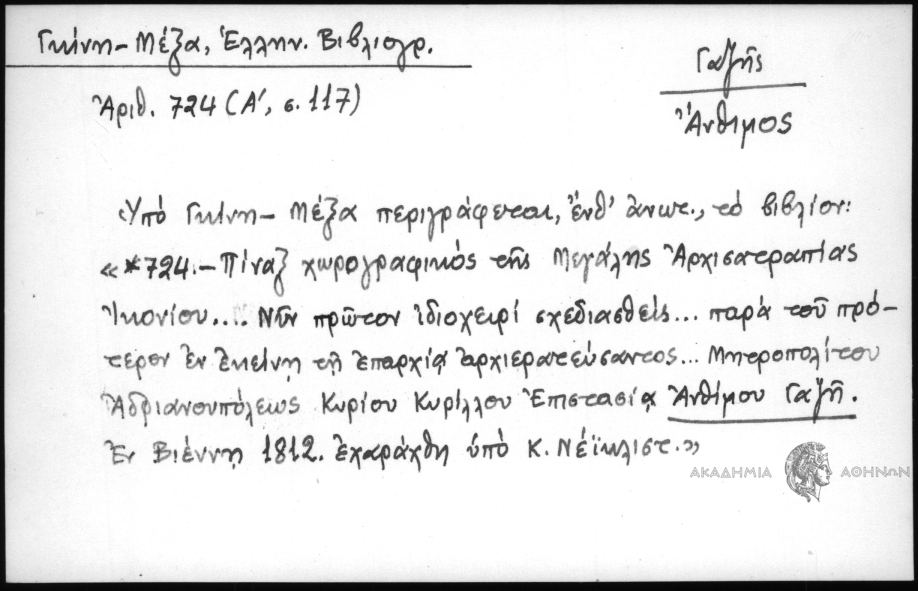 Γκίνη - Μέξα, Ἑλλην. Βιβλιογρ.
Ἀριθ. 724 (Α΄, σ. 117)
Γαζῆς
Ἄνθιμος
Ὑπό Γκίνη - Μέξα περιγράφεται, ἔνθ' ἀνωτ., τό βιβλίον:
« *724. - Πίναξ χωρογραφικός τῆς Μεγάλης Ἀρχισατραπίας
Ἰκονίου.... Νῦν πρῶτον ἰδιοχείρί σχεδιασθείς... παρά τοῦ πρό-
τερον ἐν ἐκείνῃ τῇ ἐπαρχίᾳ ἀρχιερατεύσαντος... Μητροπολίτου
Ἀδριανουπόλεως Κυρίου Κυρίλλου Ἐπιστασίᾳ Ἀνθίμου Γαζῆ.
Ἐν Βιέννῃ 1812. ἐχαράχθη ὑπό Κ. Νέϊκλιστ.»
ΑΚΑΔΗΜΙΑ ΑΘΗΝΩΝ